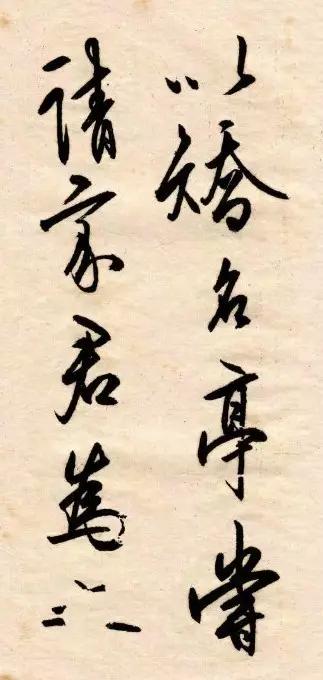 以矯名亭嘗
請家君為之